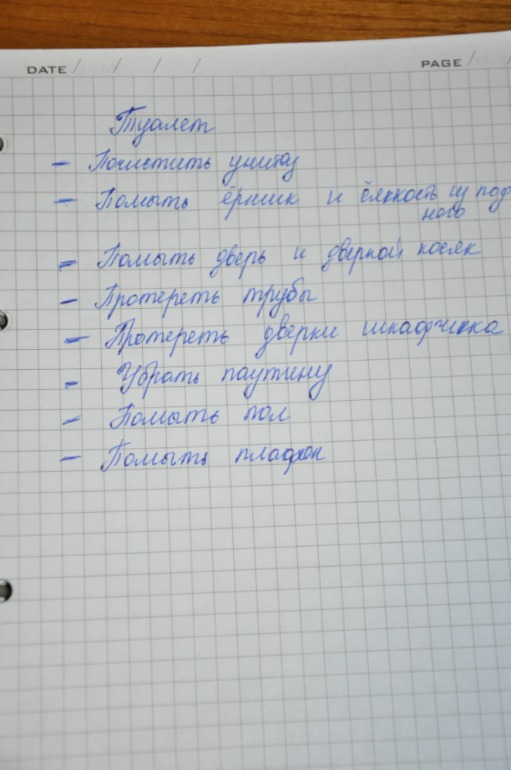 DATE / / / /
PAGE /
Туалет
- Почистить унитаз
- Помыть ёршик и ёмкость из под
него
- Помыть дверь и дверной косяк
- Протереть трубы
- Протереть дверки шкафчика
- Убрать паутину
- Помыть пол
- Помыть плафон